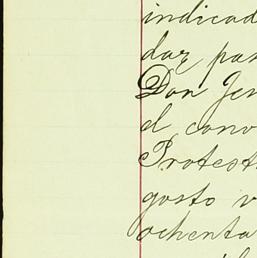 indicad
dar par
Don Jer
el conv
Protest
gosto v
ochenta